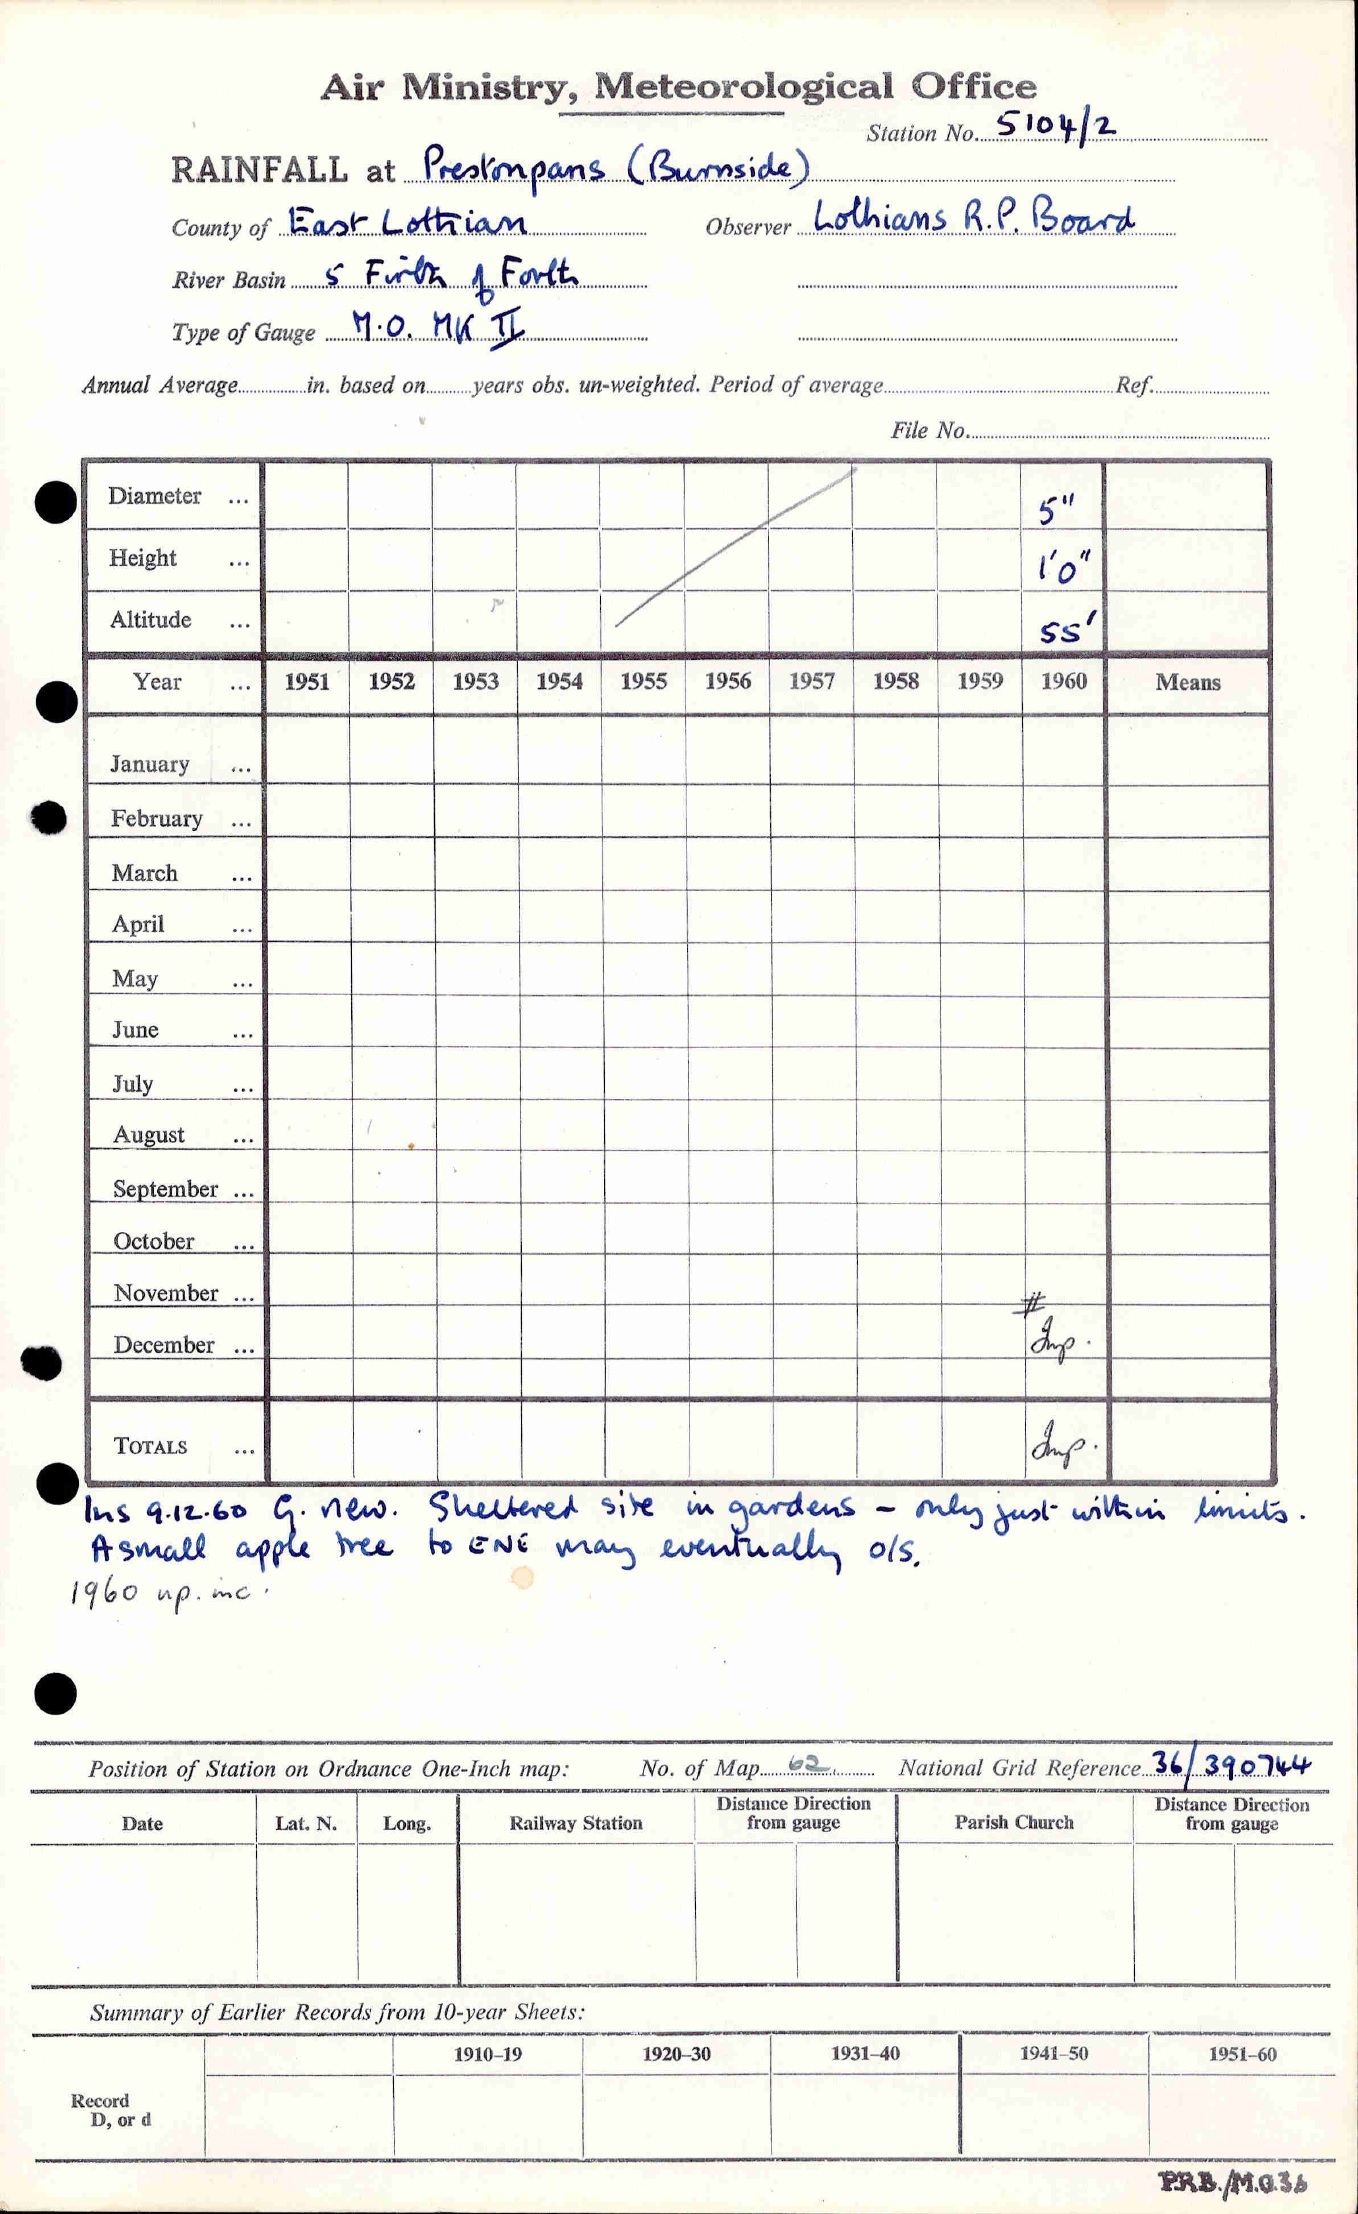 Air Ministry, Meteorological Office
Station No. 5104/2
RAINFALL at Prestonpans (Burnside)
County of East Lothian Observer Lothians R.P. Board
River Basin 5 Firth of Forth
Type of Gauge M.O. MK II
Annual Average in. based on years obs. un-weighted. Period of average Ref.
File No.
Diameter ... 5"
Height ... 1'0"
Altitude ... 55'
Year ... 1951 1952 1953 1954 1955 1956 1957 1958 1959 1960 Means
January ...
February ...
March ...
April ...
May ...
June ...
July ...
August ...
September ...
October ...
November ...
#
December ... Imp.
TOTALS ... Imp.
Ins 9.12.60 G. new. Sheltered site in gardens – only just within limits.
A small apple tree to ENE may eventually o/s.
1960 np. inc.
Position of Station on Ordnance One-Inch map: No. of Map 62 National Grid Reference 36/390744
Date Lat. N. Long. Railway Station Distance Direction from gauge Parish Church Distance Direction from gauge
Summary of Earlier Records from 10-year Sheets:
1910–19 1920–30 1931–40 1941–50 1951–60
Record
D, or d
P.R.B./M.O.36